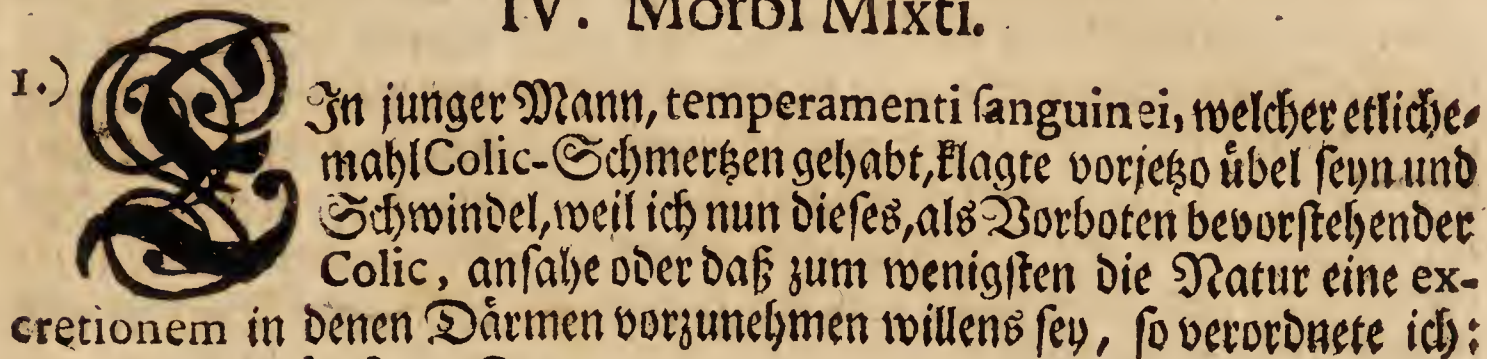 IV. Morbi Mixti.
1.) EIn junger Mann, temperamenti sanguinei, welcher etliche-
mahl Colic-Schmertzen gehabt, klagte vorjetzo übel seyn und
Schwindel, weil ich nun dieses, als Vorboten bevorstehender
Colic, ansahe oder daß zum wenigsten die Natur eine ex-
cretionem in denen Därmen vorzunehmen willens sey, so verordnete ich: